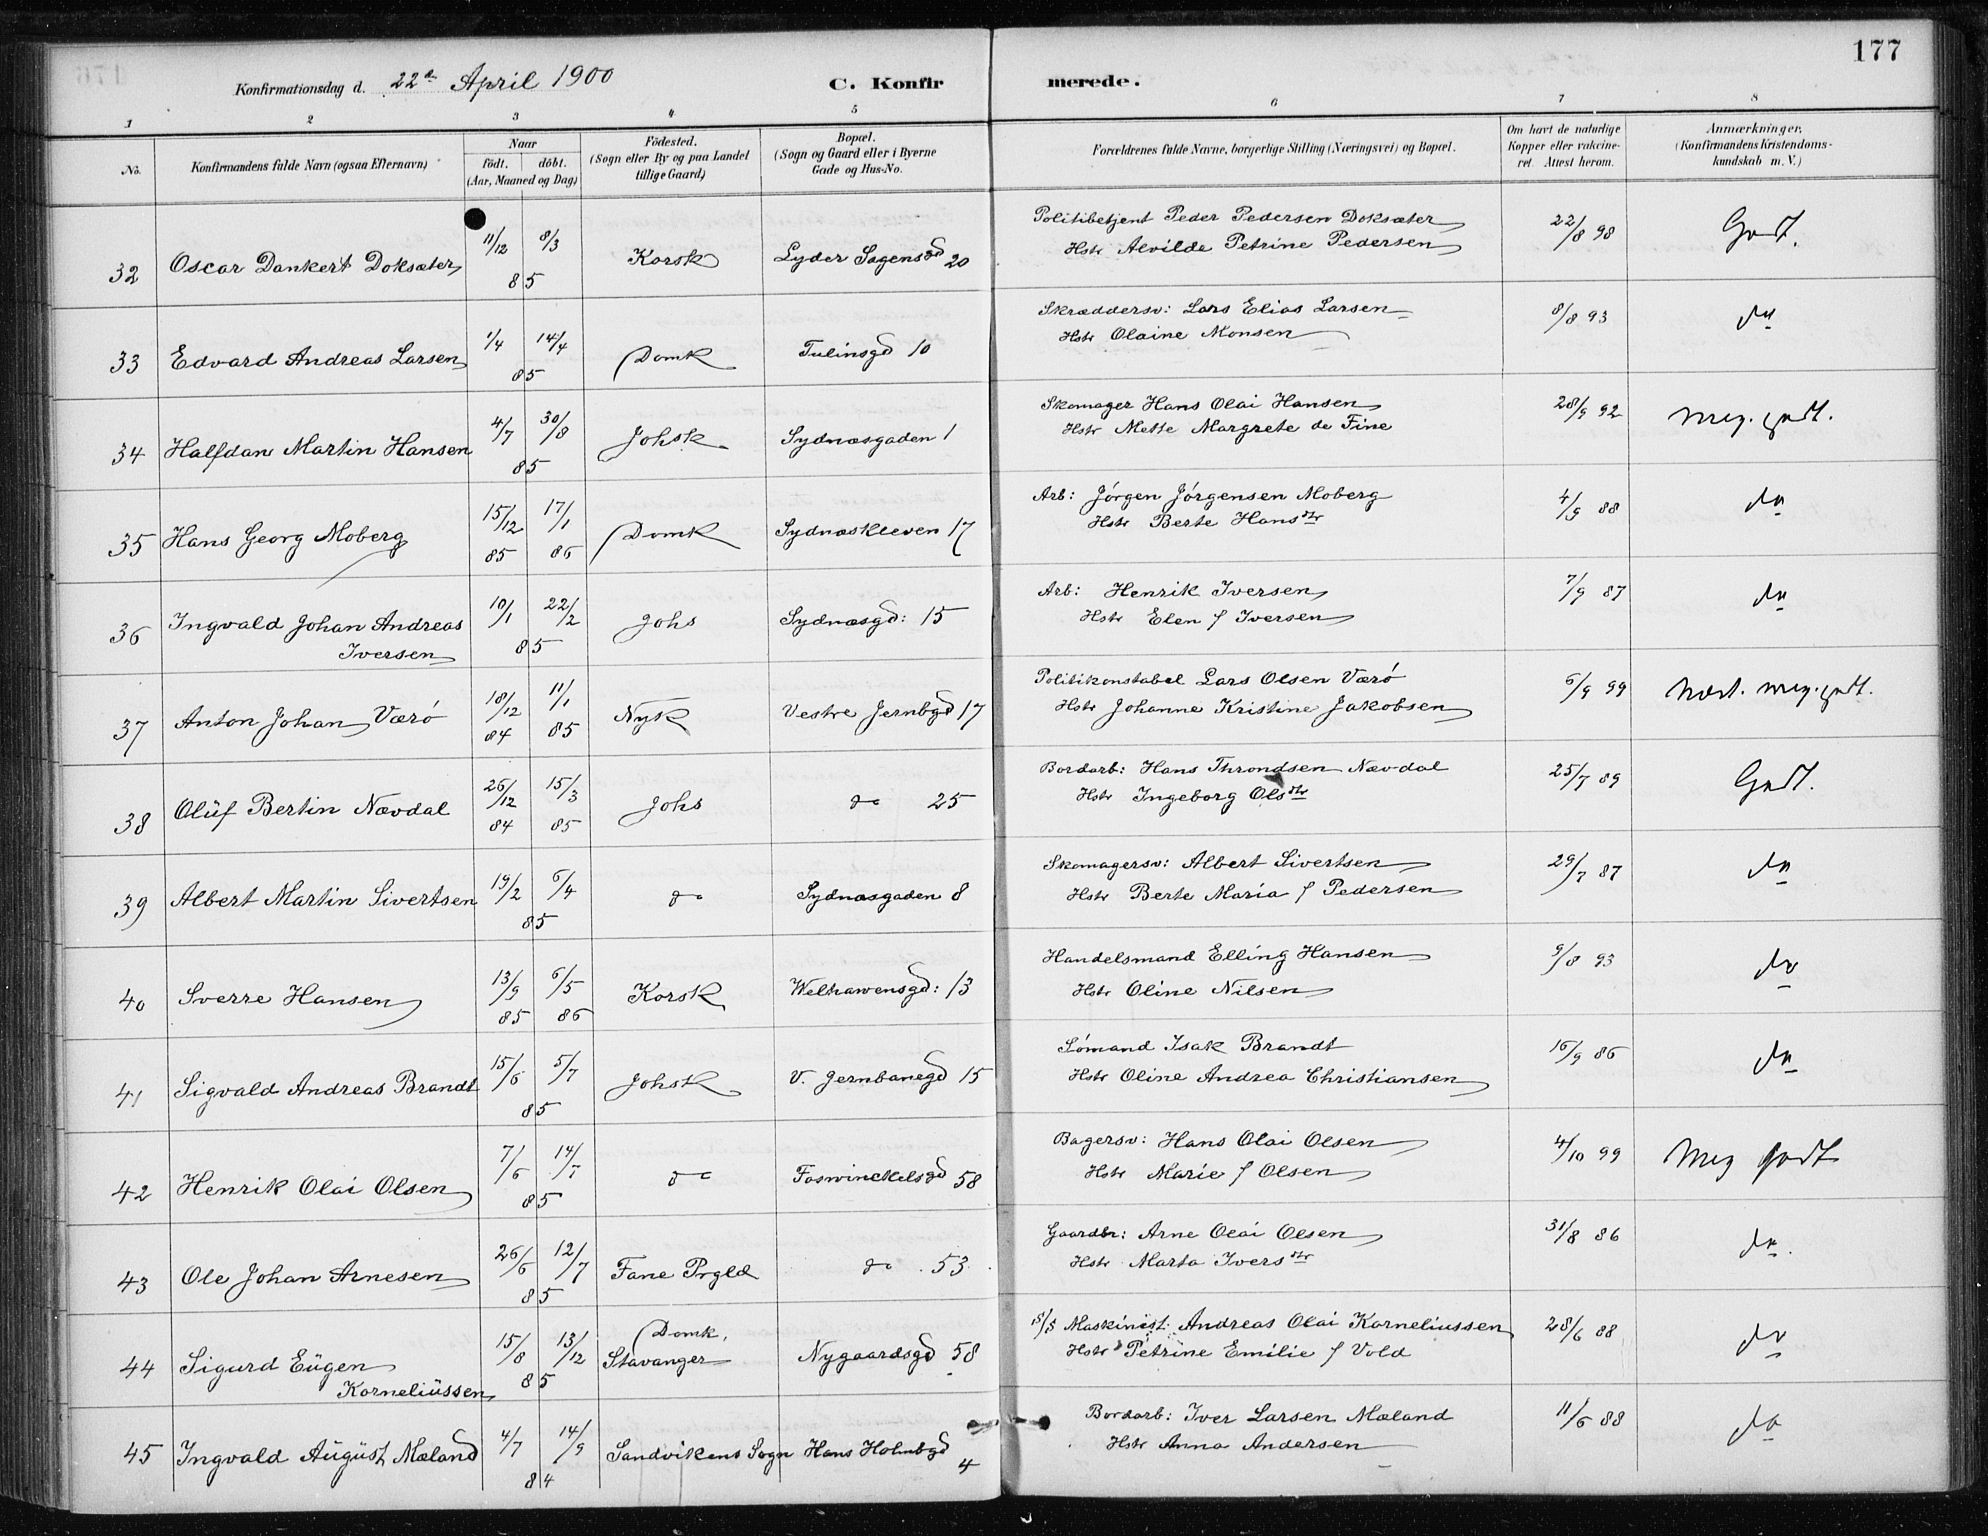 177
Konfirmationsdag d. 22de April 1900 C. Konfirmerede.
1 2 3 4 5 6 7 8
No. Konfirmandens fulde Navn (ogsaa Efternavn) Naar født. døbt. (Aar, Maaned og Dag) Födested. (Sogn eller By og paa Landet tillige Gaard) Bopæl. (Sogn og Gaard eller i Byerne Gade og Hus-No. Forældrenes fulde Navne, borgerlige Stilling (Næringsvei) og Bopæl. Om havt de naturlige Kopper eller vakcineret. Attest herom. Anmærkninger, (Konfirmandens Kristendomskundskab m. V.)
32 Oscar Dankert Doksæter 11/12 8/3 85 Korsk Lyder Sagensgd 20 Politibetjent Peder Pedersen Doksæter 22/8 98 Godt.
Hstr Alvilde Petrine Pedersen
33 Edvard Andreas Larsen 1/4 14/4 85 Domk Tulinsgd 10 Skræddersv: Lars Elias Larsen 8/8 93 do
Hstr Olaine Monsen
34 Halfdan Martin Hansen 4/7 30/8 85 Johsk Sydnæsgaden 1 Skomager Hans Olai Hansen 28/9 92 Meg. godt.
Hstr Mette Margrete de Fine
35 Hans Georg Moberg 15/12 85 17/1 86 Domk Sydnæskleven 17 Arb: Jörgen Jörgensen Moberg 4/9 88 do
Hstr Berte Hansdtr
36 Ingvald Johan Andreas Iversen 10/1 22/2 85 Johs Sydnæsgd: 15 Arb: Henrik Iversen 7/9 87 do
Hstr Elen f Iversen
37 Anton Johan Værö 18/12 84 11/1 85 Nysk Vestre Jernbgd 17 Politikonstabel Lars Olsen Værö 6/9 99 Næst. meg. godt.
Hstr Johanne Kristine Jakobsen
38 Olüf Bertin Nævdal 26/12 84 15/3 85 Johs do 25 Bordarb: Hans Throndsen Nævdal 25/7 89 Godt.
Hstr Ingeborg Olsdtr
39 Albert Martin Sivertsen 19/2 6/4 85 do Sydnæsgaden 8 Skomagersv: Albert Sivertsen 29/7 87 do
Hstr Berte Maria f Pedersen
40 Sverre Hansen 13/9 85 6/5 86 Korsk Welhavensgd: 13 Handelsmand Elling Hansen 9/8 93 do
Hstr Oline Nilsen
41 Sigvald Andreas Brandt 15/6 5/7 85 Johsk V. Jernbanegd 15 Sömand Isak Brandt 16/9 86 do
Hstr Oline Andrea Christiansen
42 Henrik Olai Olsen 7/6 14/7 85 do Foswinckelsgd 58 Bagersv: Hans Olai Olsen 4/10 99 Meg godt
Hstr Marie f Olsen
43 Ole Johan Arnesen 26/6 12/7 85 Fane Prgld do 53 Gaardbr: Arne Olai Olsen 31/8 86 do.
Hstr Marta Iversdtr
44 Sigurd Eügen Korneliüssen 15/8 13/12 85 Domk, Stavanger Nygaardsgd 58 Maskinist: Andreas Olai Korneliussen 28/6 88 do
Hstr Petrine Emilie f Vold
45 Ingvald Aügüst Mæland 4/7 14/9 84 Sandvikens Sogn Hans Holmbgd 4 Bordarb: Iver Larsen Mæland 11/6 88 do
Hstr Anna Andersen